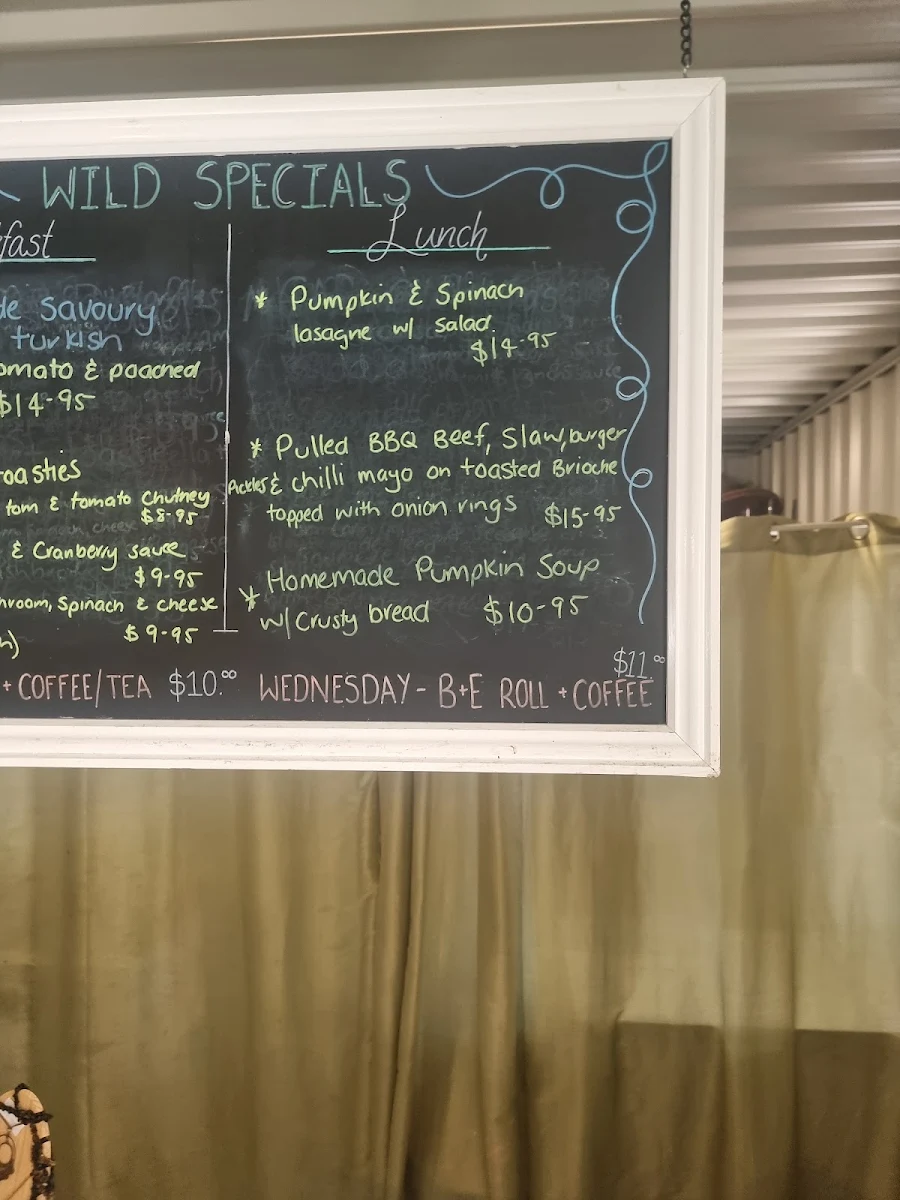 WILD SPECIALS
fast
de savoury
turkish
omato & poached
$14-95
oasties
tom & tomato chutney
$8-95
& Cranberry sauce
$9-95
hroom, Spinach & cheese
$9-95
h)
Lunch
* Pumpkin & Spinach
lasagne w/ salad.
$14-95
* Pulled BBQ Beef, Slaw, burger
Pickles & chilli mayo on toasted Brioche
topped with onion rings $15-95
* Homemade Pumpkin Soup
w/ Crusty bread $10-95
+ COFFEE/TEA $10.00 WEDNESDAY - B+E ROLL + COFFEE
$11.00